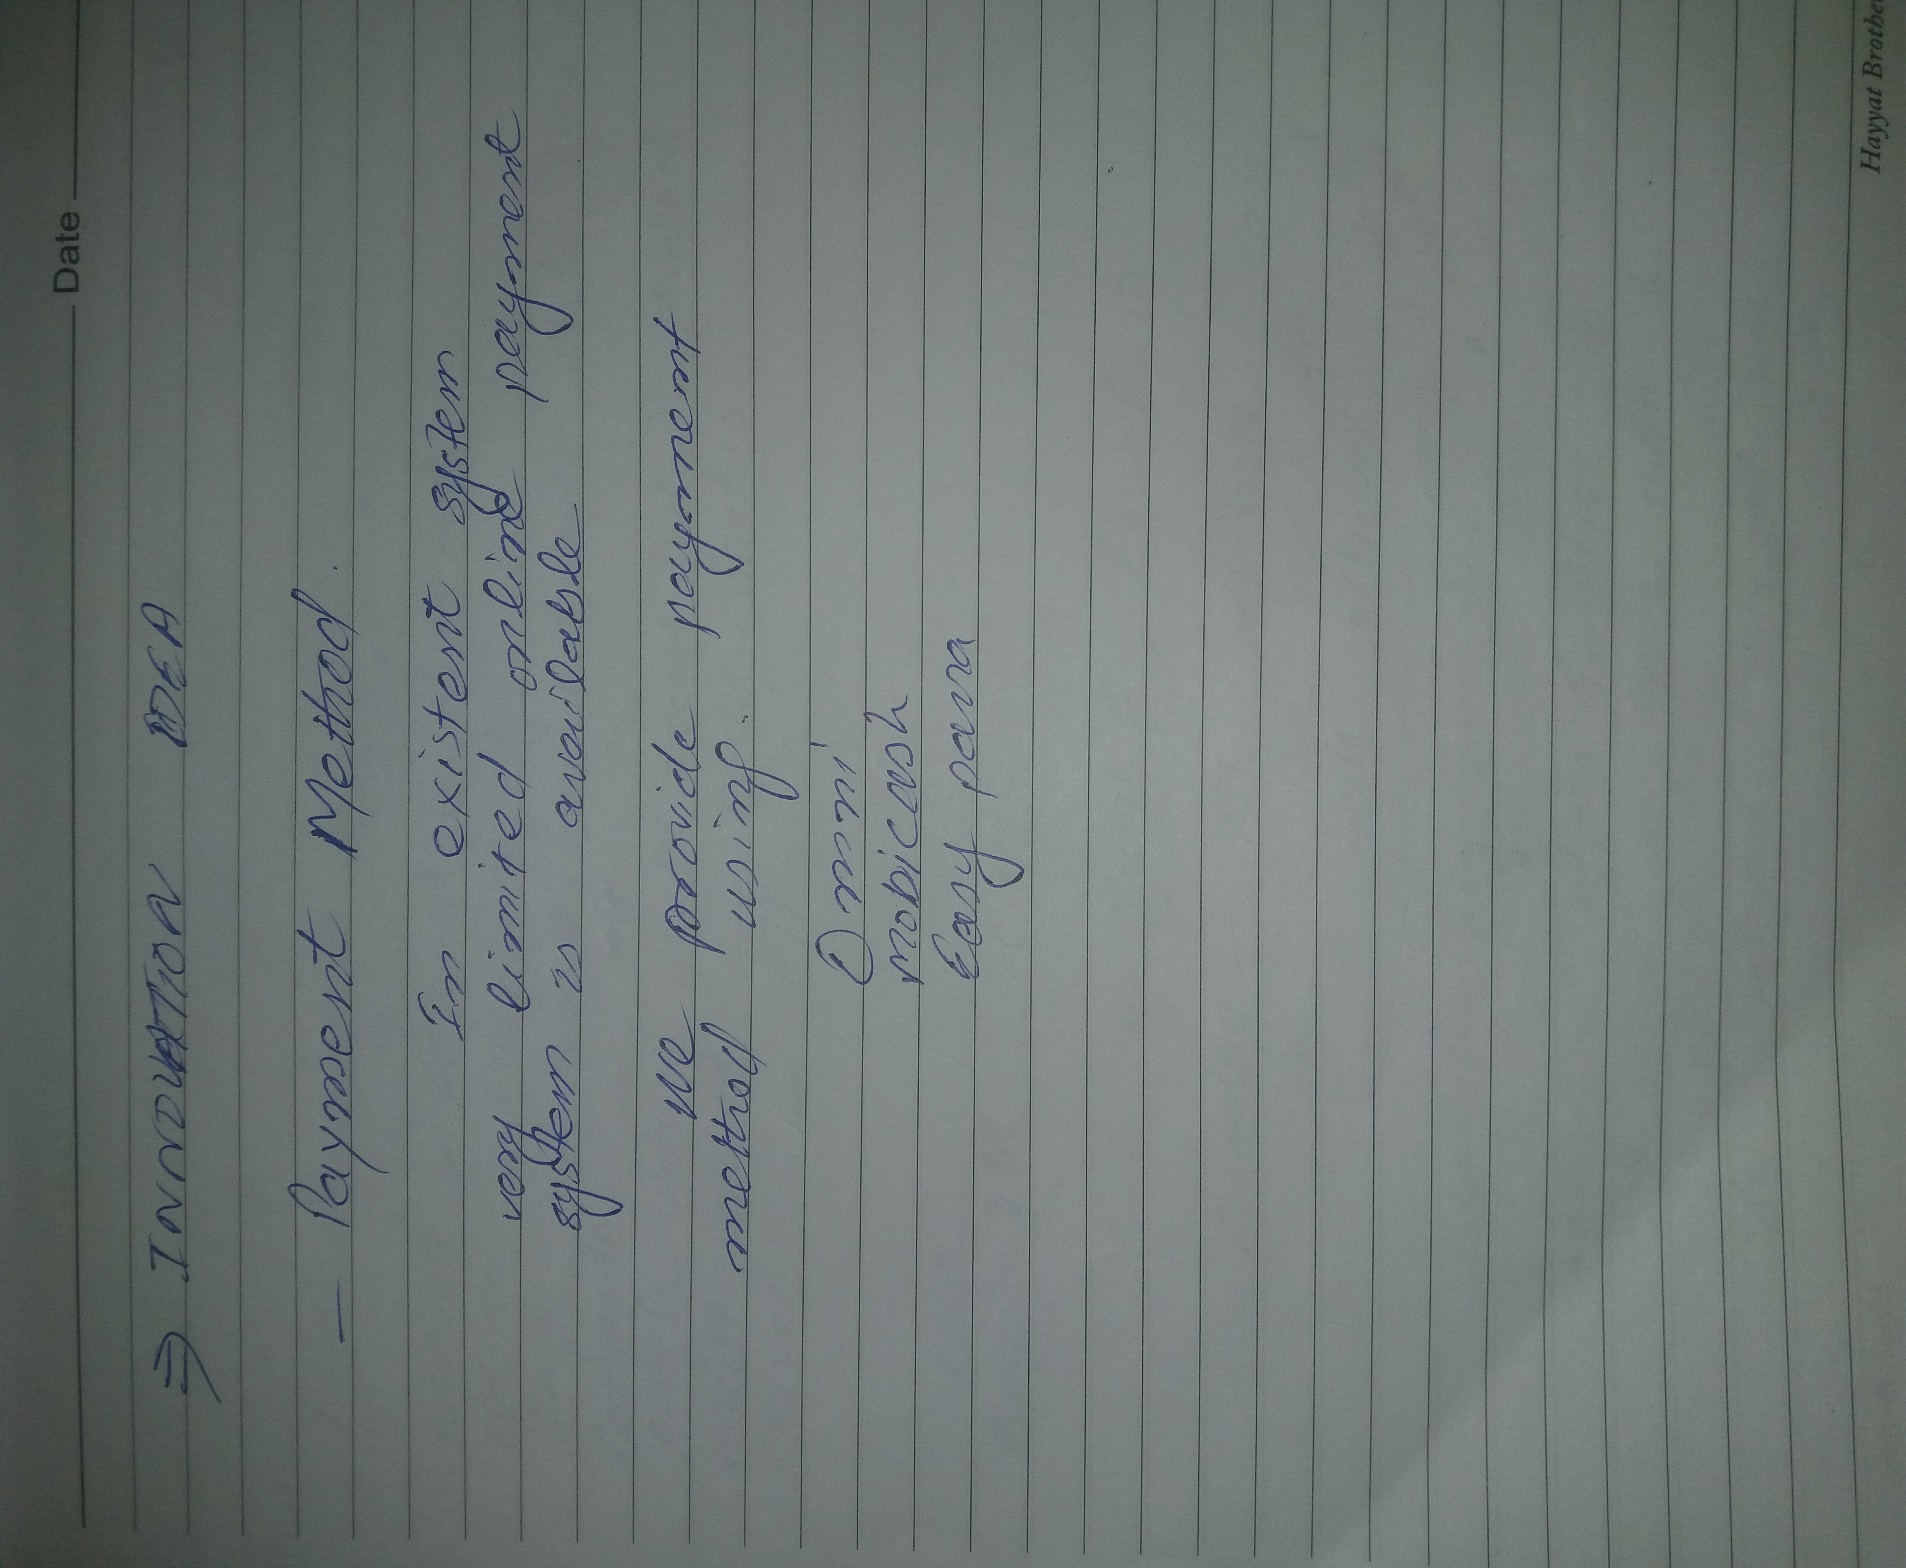 Date
⇒ INNOVATION IDEA
— Payment Method.
In existent system
very limited online payment
system is available
we provide payment
method using.
Omni
mobicash
Easy pasa
Hayyat Brothe